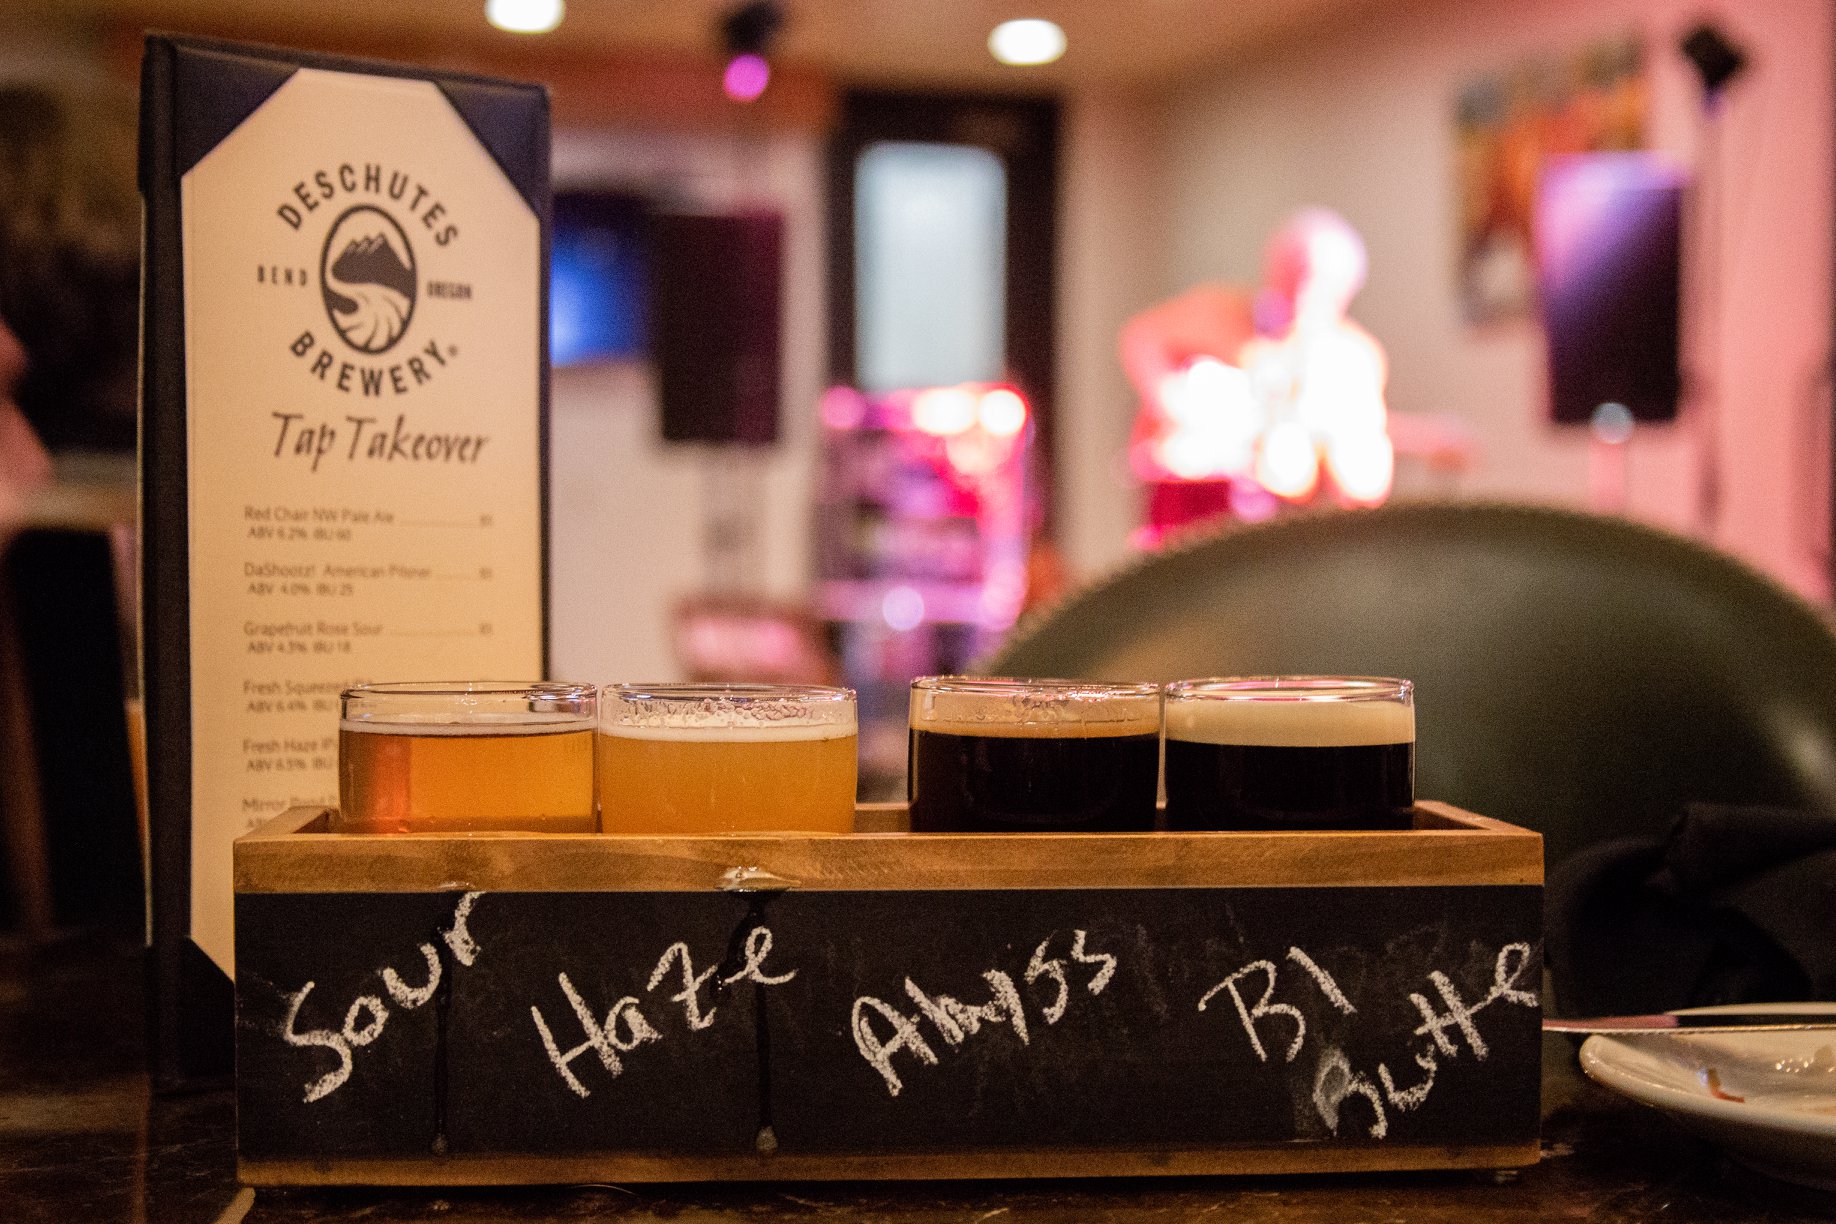 DESCHUTES
BEND OREGON
BREWERY
Tap Takeover
Red Chair NW Pale Ale
ABV 6.2% IBU 60
DaShootz! American Pilsner
ABV 4.0% IBU 25
Grapefruit Rose Sour
ABV 4.5% IBU 18
Fresh Squeezed
ABV 6.4%
Fresh Haze IPA
ABV 6.5% IBU
Mirror Pond
Sour
Haze
Abyss
Bl
Butte